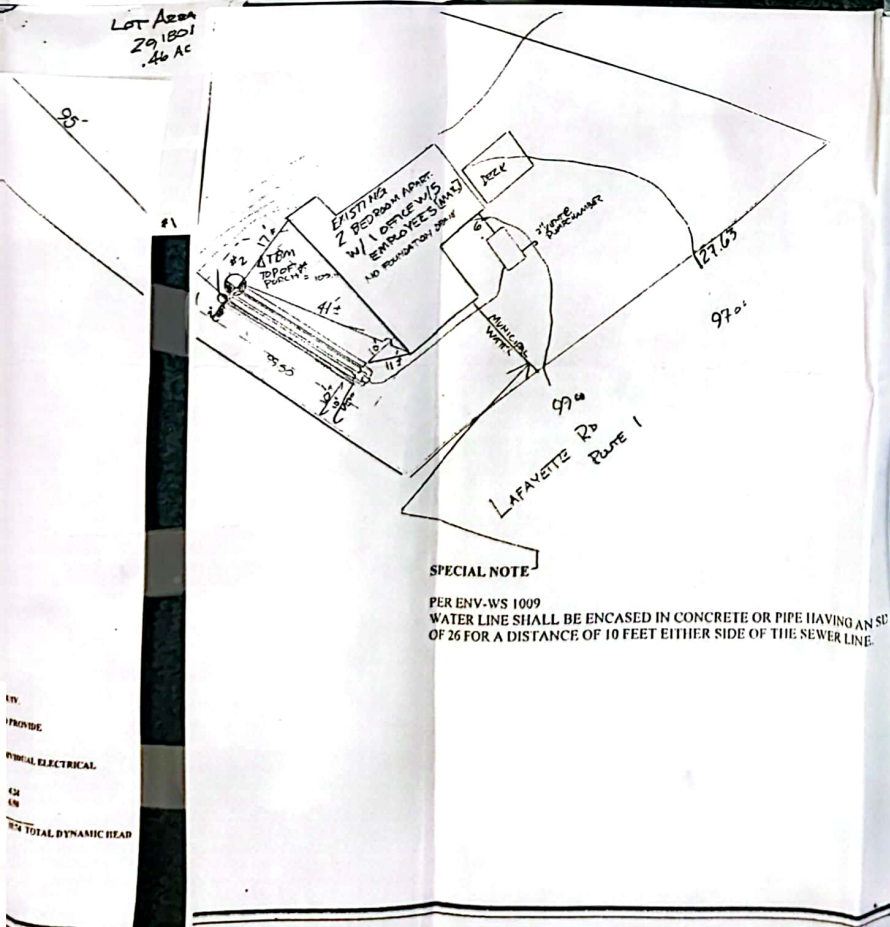 LOT AREA
29,180
.46 AC
95-
#1
EXISTING
2 BEDROOM APART.
W/ 1 OFFICE W/5
EMPLOYEES (MAX)
NO FOUNDATION DRAIN
DECK
#2
17'±
TBM
TOP OF
PORCH
41'±
10'
11'±
6'
MUNICIPAL
WATER
127.63
97
99
LAFAYETTE RD
ROUTE 1
SPECIAL NOTE
PER ENV-WS 1009
WATER LINE SHALL BE ENCASED IN CONCRETE OR PIPE HAVING AN
OF 26 FOR A DISTANCE OF 10 FEET EITHER SIDE OF THE SEWER LINE.
PROVIDE
ELECTRICAL
TOTAL DYNAMIC HEAD